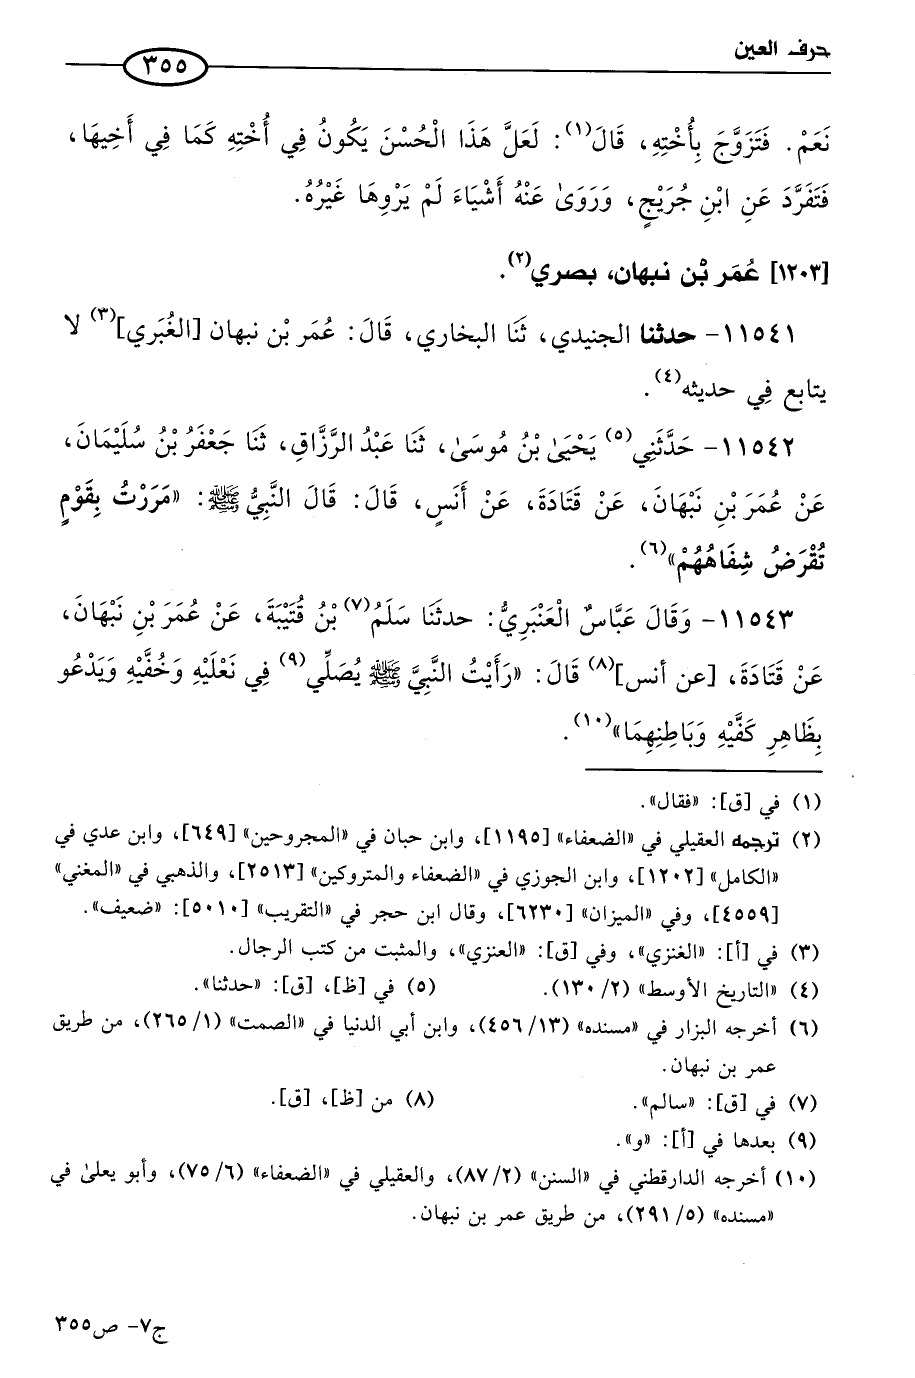 حرف العين
٣٥٥
نَعَمْ. فَتَزَوَّجَ بِأُخْتِهِ، قَالَ(١): لَعَلَّ هَذَا الْحُسْنَ يَكُونُ فِي أُخْتِهِ كَمَا فِي أَخِيهَا،
فَتَفَرَّدَ عَنِ ابْنِ جُرَيْجٍ، وَرَوَىٰ عَنْهُ أَشْيَاءَ لَمْ يَرْوِهَا غَيْرُهُ.
[١٢٠٣] عُمَر بْن نبهان، بصري(٢).
١١٥٤١- حدثنا الجنيدي، ثَنَا البخاري، قَالَ: عُمَر بْن نبهان [الغُبَري](٣) لا
يتابع فِي حديثه(٤).
١١٥٤٢- حَدَّثَنِي(٥) يَحْيَىٰ بْنُ مُوسَىٰ، ثَنَا عَبْدُ الرَّزَّاقِ، ثَنَا جَعْفَرُ بْنُ سُلَيْمَانَ،
عَنْ عُمَرَ بْنِ نَبْهَانَ، عَنْ قَتَادَةَ، عَنْ أَنَسٍ، قَالَ: قَالَ النَّبِيُّ ﷺ: «مَرَرْتُ بِقَوْمٍ
تُقْرَضُ شِفَاهُهُمْ»(٦).
١١٥٤٣- وَقَالَ عَبَّاسٌ الْعَنْبَرِيُّ: حدثنَا سَلَمُ(٧) بْنُ قُتَيْبَةَ، عَنْ عُمَرَ بْنِ نَبْهَانَ،
عَنْ قَتَادَةَ، [عن أنس](٨) قَالَ: «رَأَيْتُ النَّبِيَّ ﷺ يُصَلِّي(٩) فِي نَعْلَيْهِ وَخُفَّيْهِ وَيَدْعُو
بِظَاهِرِ كَفَّيْهِ وَبَاطِنِهِمَا»(١٠).
(١) في [ق]: «فقال».
(٢) ترجمه العقيلي في «الضعفاء» [١١٩٥]، وابن حبان في «المجروحين» [٦٤٩]، وابن عدي في
«الكامل» [١٢٠٢]، وابن الجوزي في «الضعفاء والمتروكين» [٢٥١٣]، والذهبي في «المغني»
[٤٥٥٩]، وفي «الميزان» [٦٢٣٠]، وقال ابن حجر في «التقريب» [٥٠١٠]: «ضعيف».
(٣) في [أ]: «الغنزي»، وفي [ق]: «العنزي»، والمثبت من كتب الرجال.
(٤) «التاريخ الأوسط» (٢/ ١٣٠). (٥) في [ظ]، [ق]: «حدثنا».
(٦) أخرجه البزار في «مسنده» (١٣/ ٤٥٦)، وابن أبي الدنيا في «الصمت» (١/ ٢٦٥)، من طريق
عمر بن نبهان.
(٧) في [ق]: «سالم». (٨) من [ظ]، [ق].
(٩) بعدها في [أ]: «و».
(١٠) أخرجه الدارقطني في «السنن» (٢/ ٨٧)، والعقيلي في «الضعفاء» (٦/ ٧٥)، وأبو يعلىٰ في
«مسنده» (٥/ ٢٩١)، من طريق عمر بن نبهان.
ج٧- ص٣٥٥